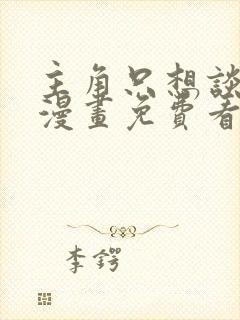 主角只想談
漫畫免費看
李鍔